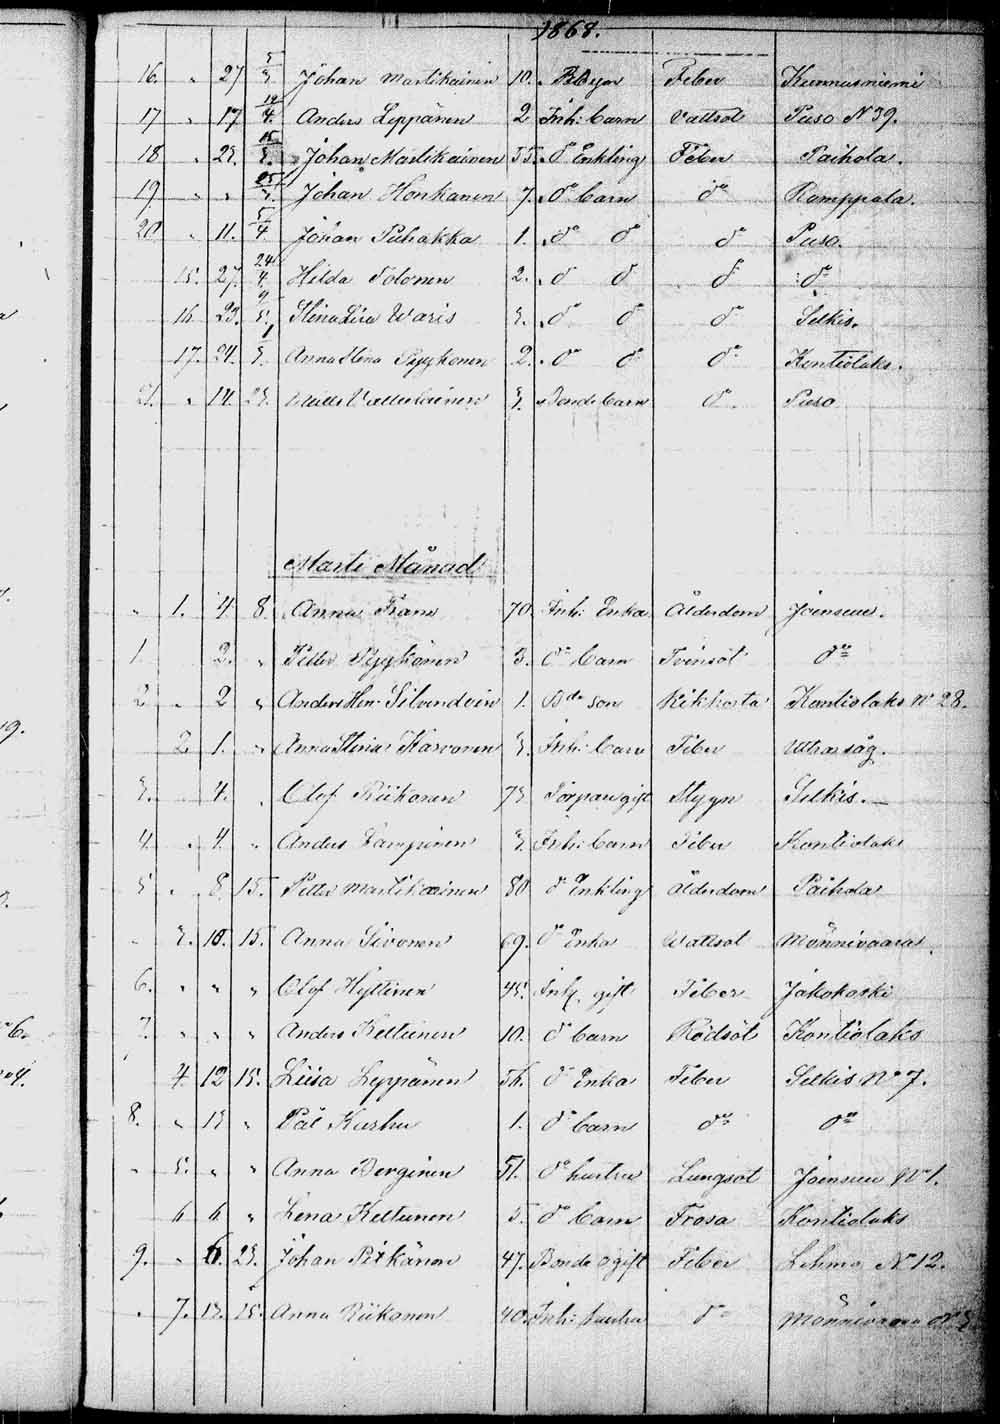 1868.
16. " 27 5/3 Johan Martikainen 10. Feber Kunnasniemi
17 " 17 12/4. Anders Leppänen 2 Inh: barn Vattsot Puso N 39.
18 " 23. 15/3. Johan Martikainen 55. do Enkling Feber Paihola.
19 " " 25/3. Johan Honkanen 7. do barn do Romppala.
20 " 11. 5/4 Johan Puhakka 1. do do do Puso.
15. 27. 24/4. Hilda Tolonen 2. do do do do
16 23. Stina Lisa Waris 3. do do do Selkis.
17. 24. 3. Anna Stina Pyykönen 2. do do do Kontiolaks.
21. " 14. 23. 3. Bonde barn do Puso
Martii Månad
" 1. 4 8. Anna Fram 70. Inh: Enka Ålderdom Joensuu.
1 2. " Petter Pyykönen 3. do barn Tvinsot do
2 " 2 " Anders Hen: Silvendoin 1. Bde son Kikhosta Kontiolaks No 28.
2 1. " Anna Stina Karvonen 3. Inh: barn Feber Utra såg.
3. 4. " Olof Riikonen 73 Torpare gift Stygn Selkis.
4. " 4. " Anders Lampinen 3. Inh: barn Feber Kontiolaks
5 " 8. 15. Petter Martikainen 80. do Enkling Ålderdom Paihola
" 3. 10. 15. Anna Sivonen 69. do Enka Wattsot Mönnivaara.
6. " " " Olof Hyttinen 43. Inh. gift Feber Jakokoski
7. " " " Anders Kettunen 10. do barn Rödsot Kontiolaks
4 12 15. Liisa Leppänen 56. do Enka Feber Selkis No 7.
8. " 13 " Pål Karhu 1. do barn do do
" 5. " " Anna Berginen 51. do hustru Lungsot Joensuu No 1.
6 6. " Lena Kettunen 5. do barn Frosa Kontiolaks
9. " 6. 23. Johan Pitkänen 47. Bonde gift Feber Lehmo No 12.
" 7. 13. 15. Anna Riikonen 40. Inh: hustru do Mönnivaara No 3